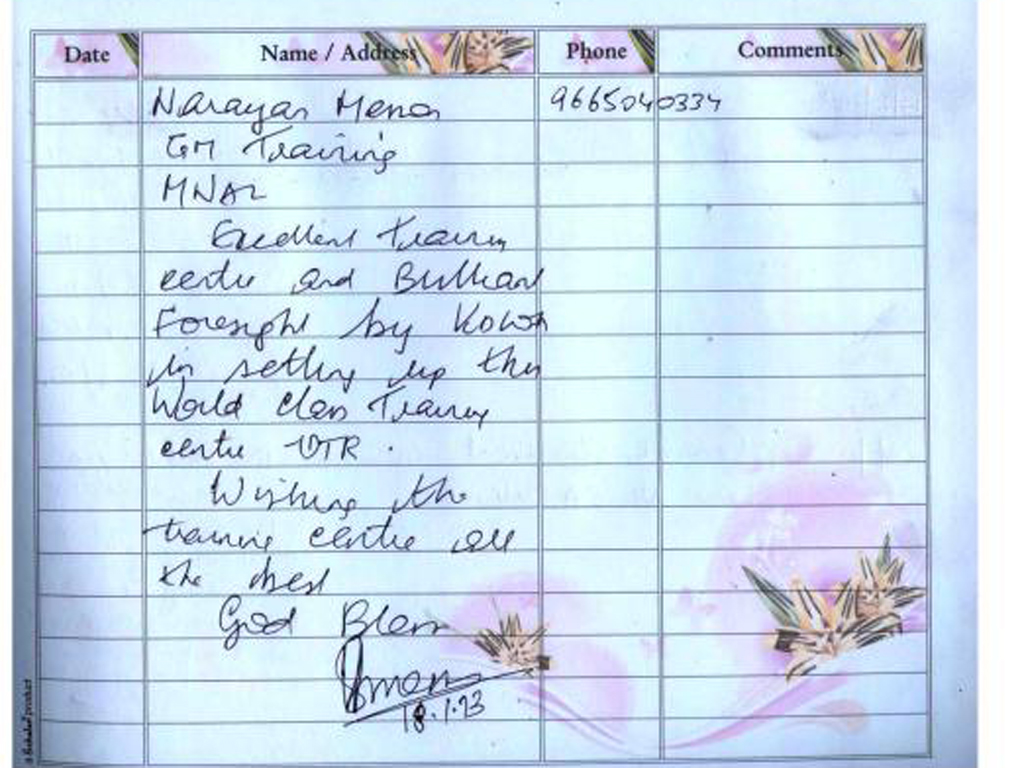 Date Name / Address Phone Comments
Narayan Menon 9665040334
GM Training
MNAL
Excellent Training
centre and Brilliant
Foresight by
in setting up this
World Class Training
centre VTR.
Wishing the
training centre all
the best
God Bless
18.1.13